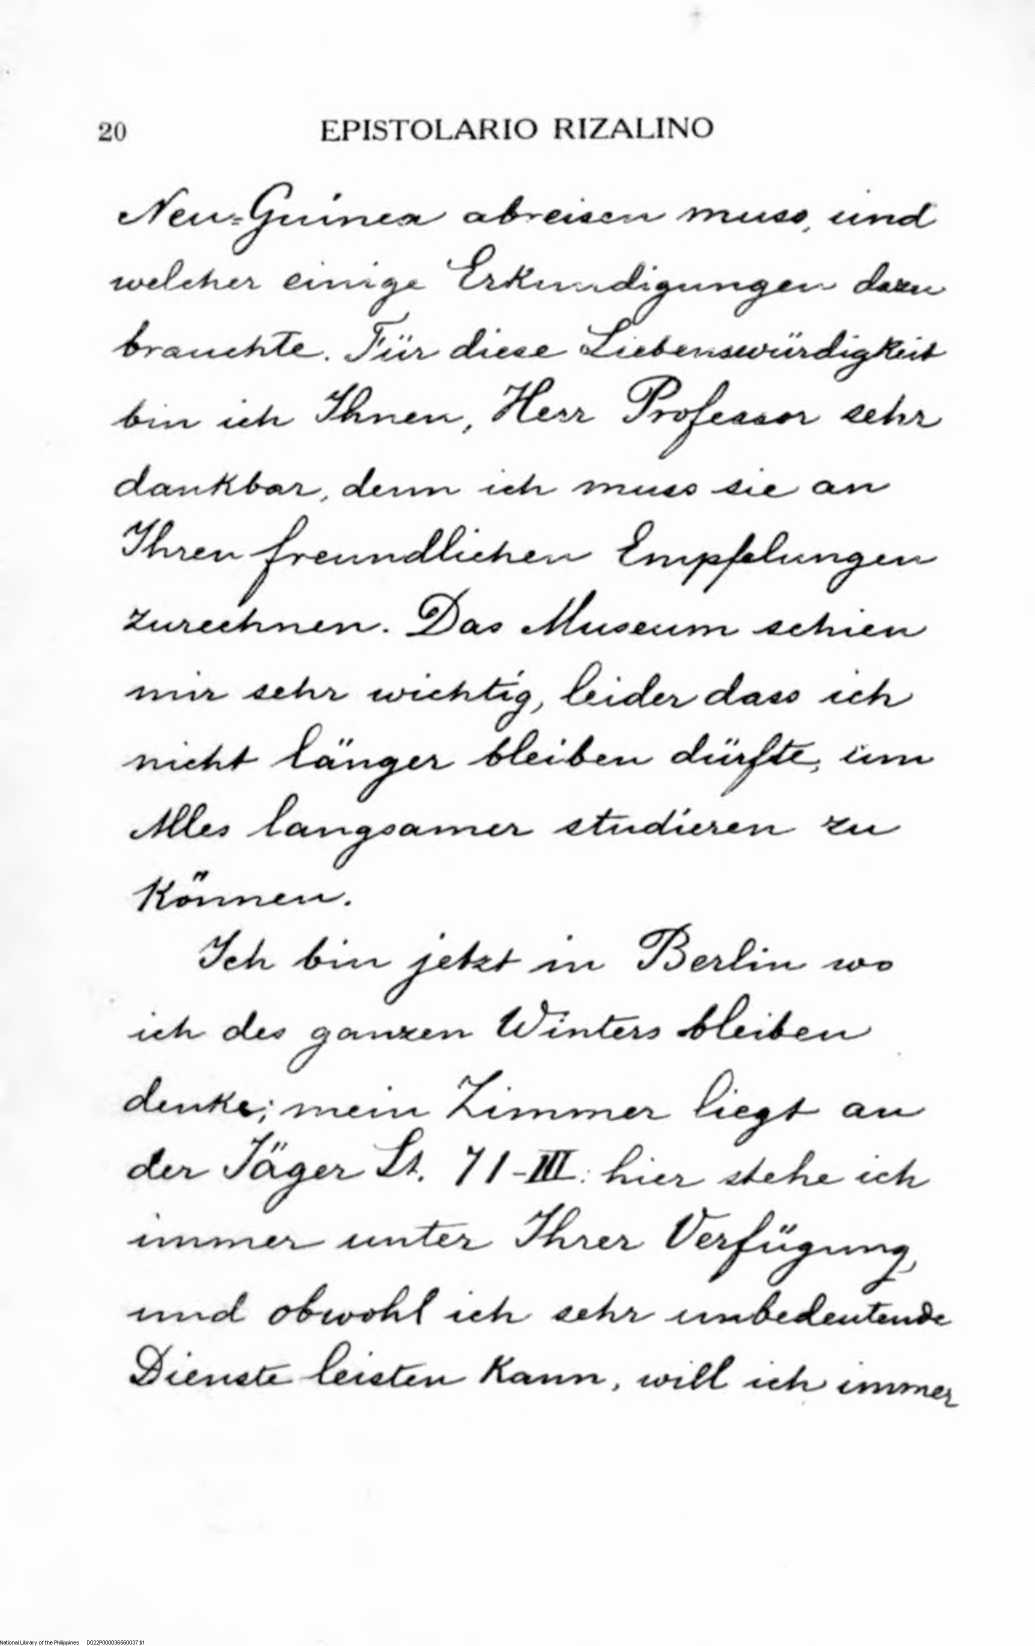 20 EPISTOLARIO RIZALINO
Neu-Guinea abreisen muss, und
welcher einige Erkundigungen dazu
brauchte. Für diese Liebenswürdigkeit
bin ich Ihnen, Herr Professor sehr
dankbar, denn ich muss sie an
Ihren freundlichen Empfelungen
zurechnen. Das Museum schien
mir sehr wichtig, leider dass ich
nicht länger bleiben dürfte, um
Alles langsamer studieren zu
können.
Ich bin jetzt in Berlin wo
ich des ganzen Winters bleiben
denke; mein Zimmer liegt an
der Jäger St. 71-III: hier stehe ich
immer unter Ihrer Verfügung,
und obwohl ich sehr unbedeutende
Dienste leisten kann, will ich immer
National Library of the Philippines